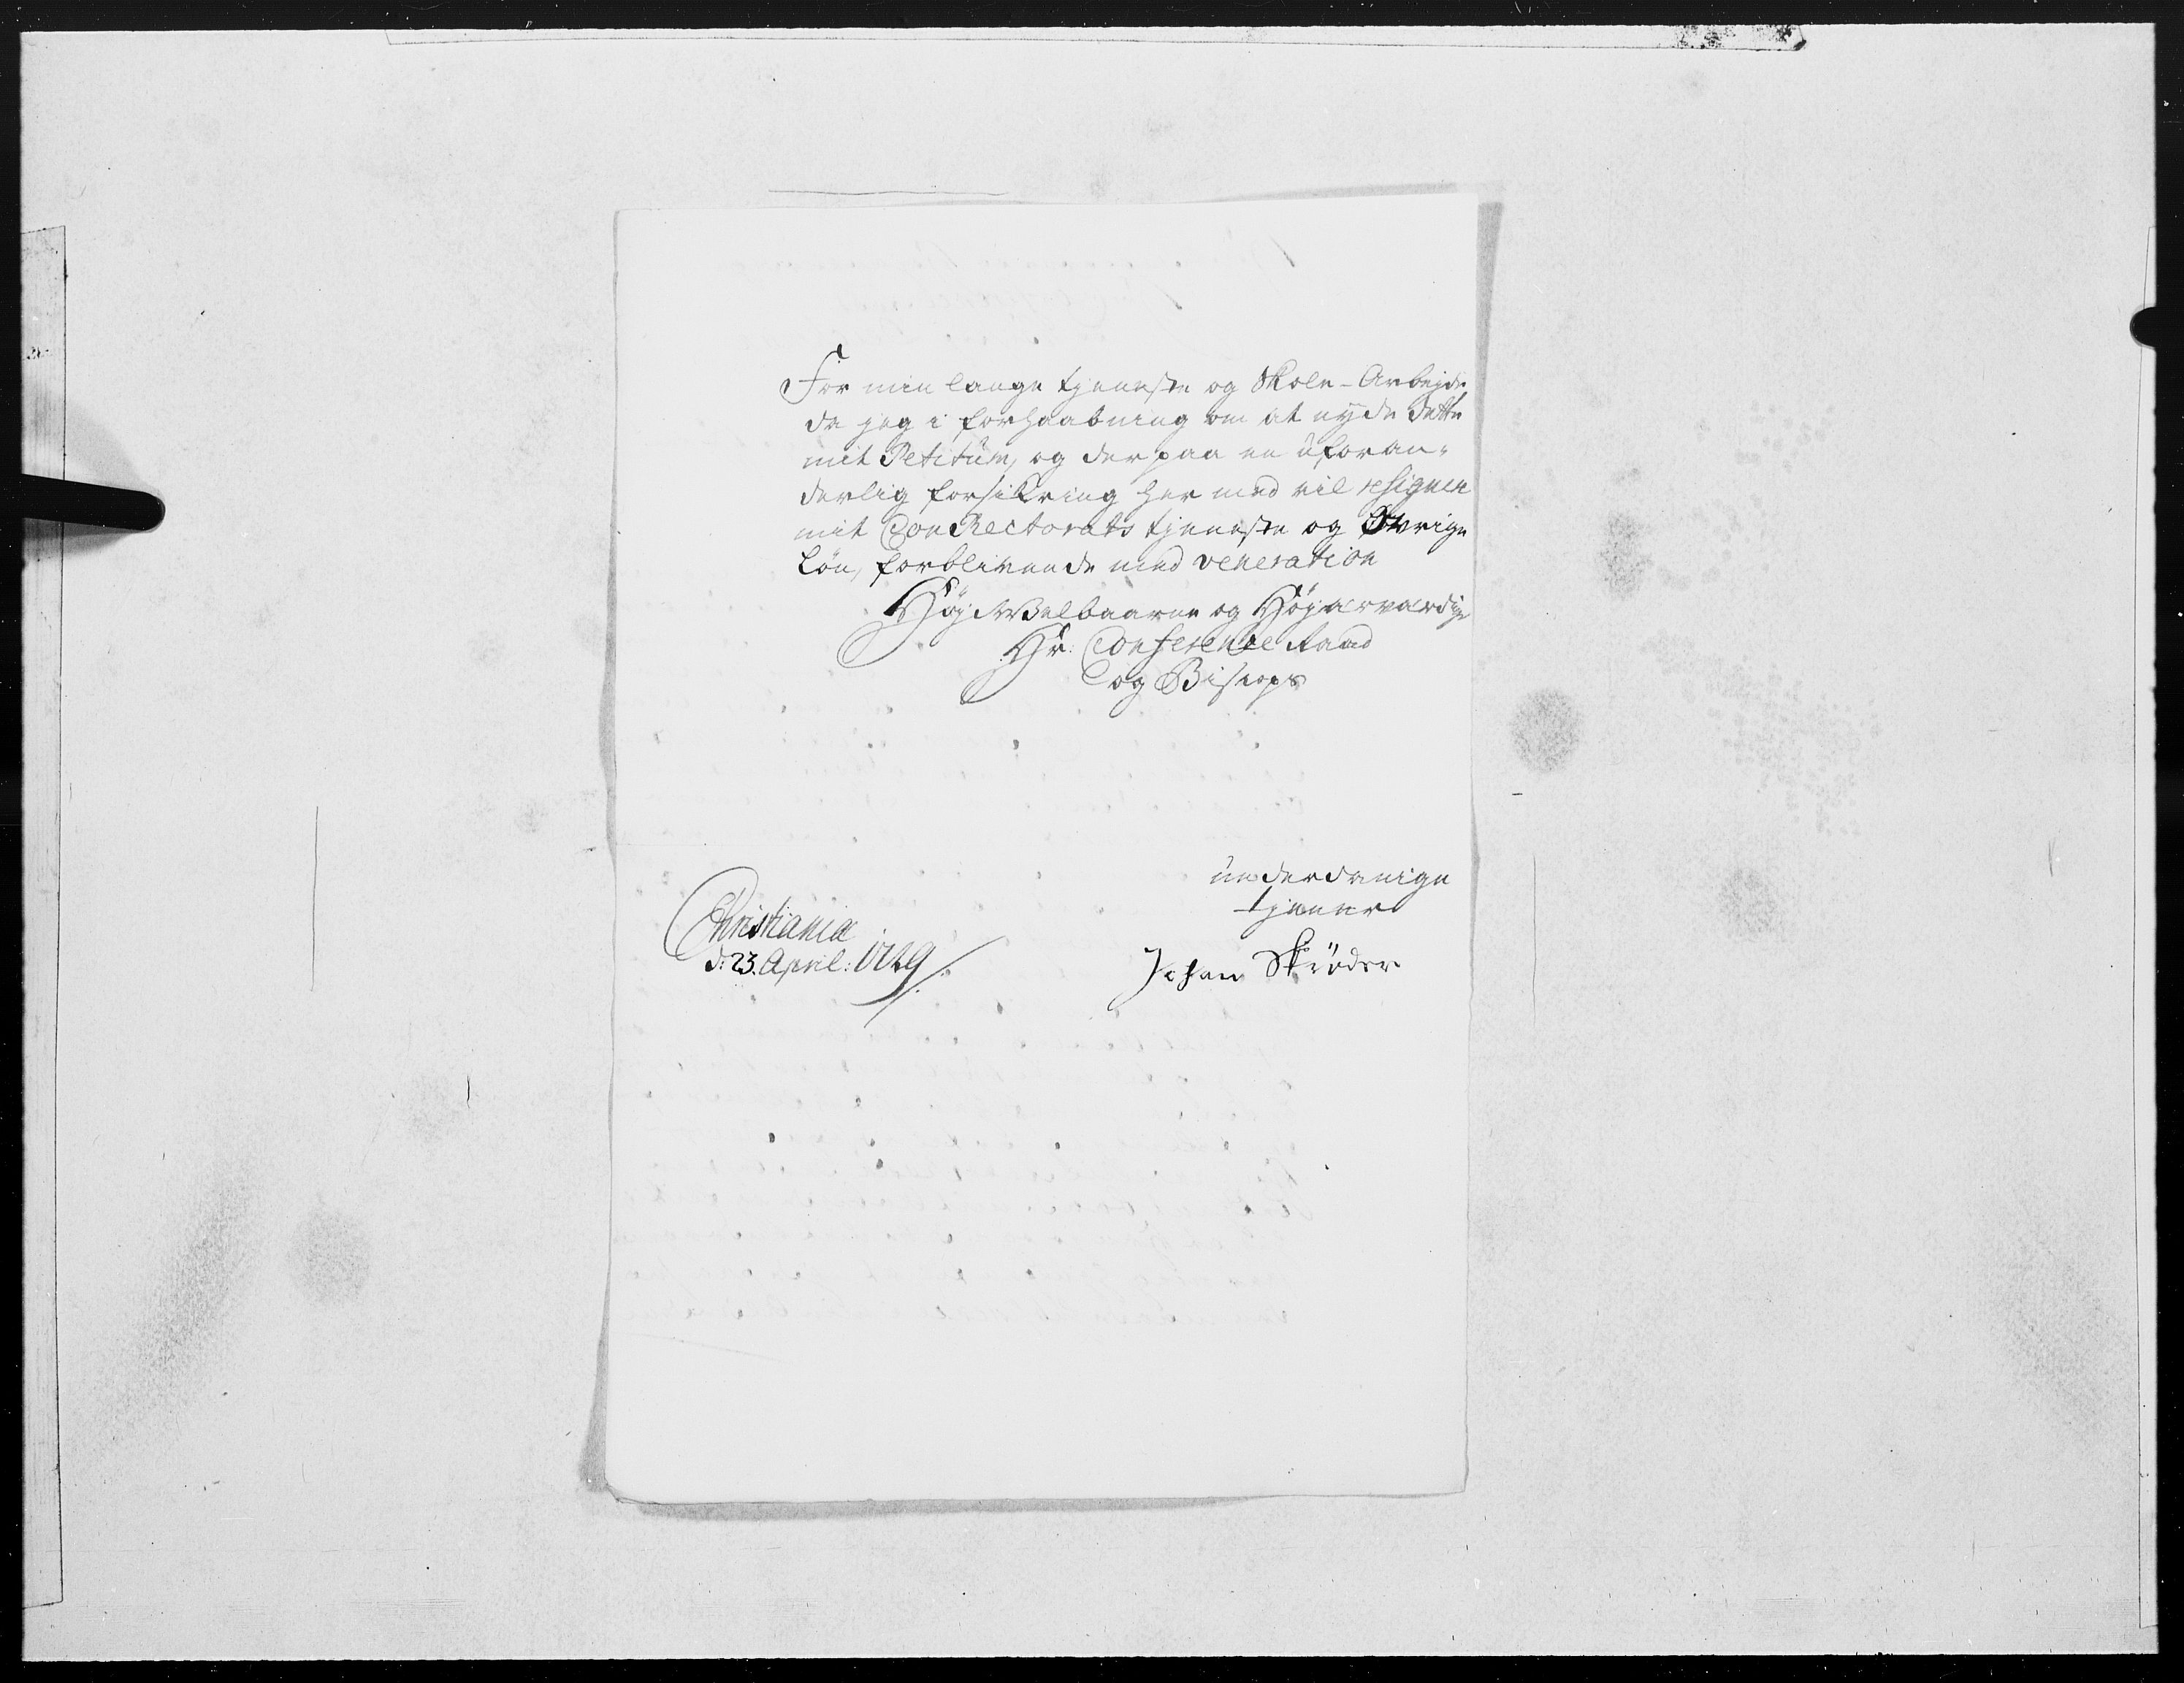 For min lange tjeneste og Skole-Arbejde
da jeg i forhaabning om at nyde dette
mit Petitum, og derpaa en uforan-
derlig forsikring her med vil resignere
mit ConRectorats tjeneste og Øvrige
Løn, forblivende med veneration
HøjWelbaarne og Højærværdige
Hr: Conferentz Raad
og Biskops
underdanige
tjener
Christiania
d: 23. April: 1729
Johan Skrøder